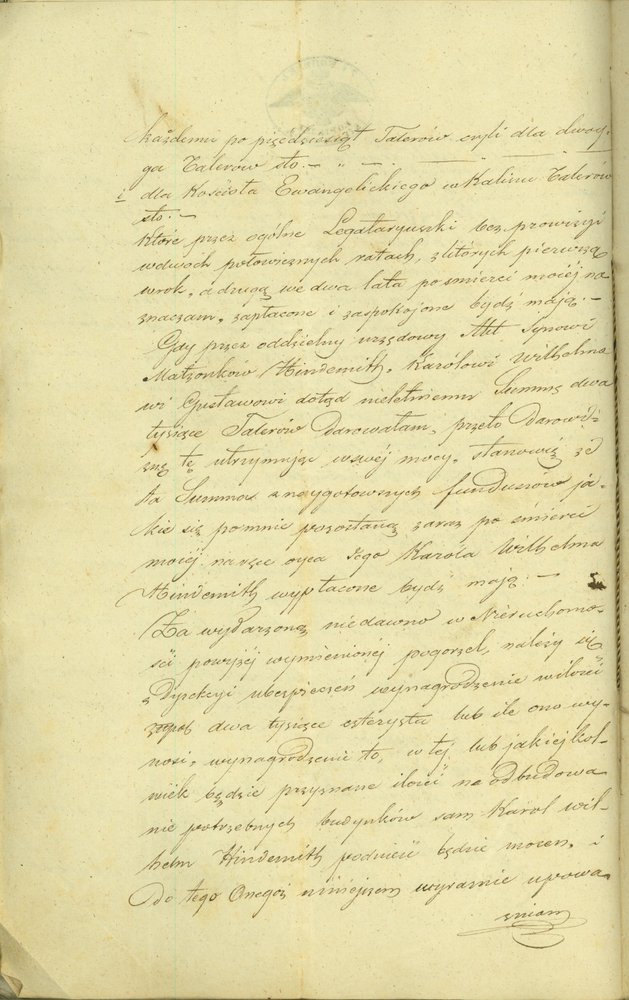 każdemu po pięćdziesiąt Talerów czyli dla dwoy-
ga Talerów sto.—
i dla Kościoła Ewangelickiego w Kaliszu Talerów
sto.—
które przez ogólne Legataryuszki bez prowizyi
w dwoch połowicznych ratach, z których pierwszą
w rok, a drugą we dwa lata po śmierci moiéj na
znaczam, zapłacone i zaspokojone bydź mają.—
Gdy przez oddzielny urzędowy Akt Synowi
Małżonków Hindemith, Karolowi Wilhelmo
wi Gustawowi dotąd nieletniemu Summę dwa
tysiące Talerów darowałam, przeto Darowi-
znę tę utrzymując w swéj mocy, stanowię że
ta Summa z naygotownych funduszów ja-
kie się po mnie pozostaną zaraz po śmierci
moiéj na ręce oyca Jego Karola Wilhelma
Hindemith wypłacone bydź mają.—
Za wydarzoną niedawno w Nieruchomo-
ści powyżéj wymienionéj pogorzel, należy się
z Dyrekcyi ubezpieczeń wynagrodzenie w ilości
dwa tysiące czterysta lub ile ono wy-
nosi, wynagrodzenie to, w téj lub jakiéjkol-
wiek będzie przyznane ilości na odbudowa
nie potrzebnych budynków sam Karol Wil-
helm Hindemith podnieść będzie mocen, i
do tego Onegoż niniejszem wyraźnie upowa
żniam